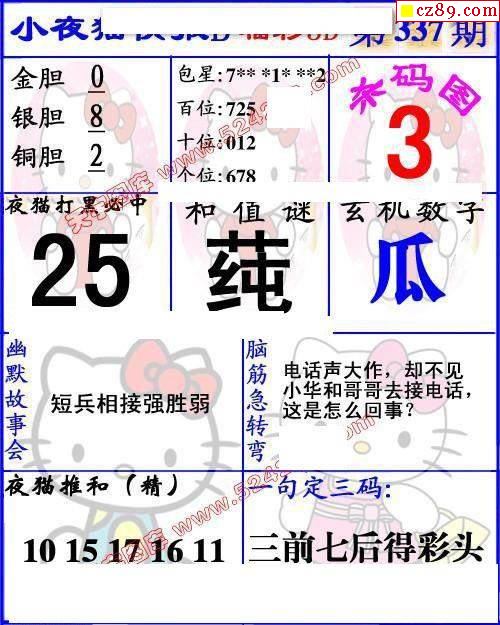 cz89.com
小夜猫
第337期
金胆 0
银胆 8
铜胆 2
包星:7** *1* **2
百位:725
十位:012
个位:678
杀码图
3
夜猫打黑必中
25
和值谜
莼
玄机数字
瓜
幽默故事会
短兵相接强胜弱
脑筋急转弯
电话声大作，却不见
小华和哥哥去接电话，
这是怎么回事？
夜猫推和（精）
10 15 17 16 11
一句定三码：
三前七后得彩头